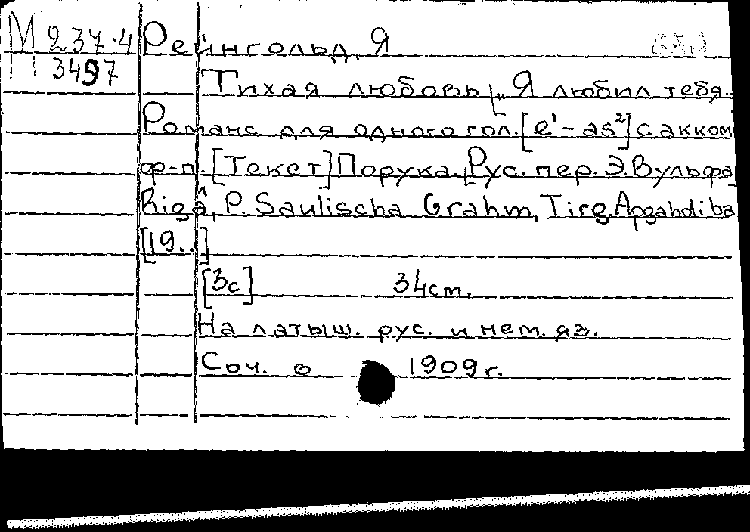 М 237.4 Рейнгольд, Я
П 3497
Тихая любовь [„Я любил тебя..
Романс для одного гол. [e¹ – as²] с акком
ф-п. [Текст] Порука. [Рус. пер. Э. Вульфа
Rigâ, P. Saulischa Grahm, Tirg. Apgahdiba
[19..]
[3с] 34 см.
На латыш. рус. и нем. яз.
Соч. о 1909 г.